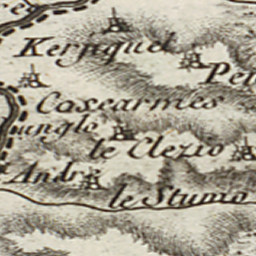 re
Kerjiquel
Pen
Coscarmes
unglo
le Clezio
Andr
le Stumo